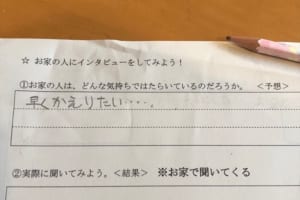 ☆ お家の人にインタビューをしてみよう！
①お家の人は、どんな気持ちではたらいているのだろうか。 ＜予想＞
早くかえりたい・・・・
②実際に聞いてみよう。＜結果＞ ※お家で聞いてくる